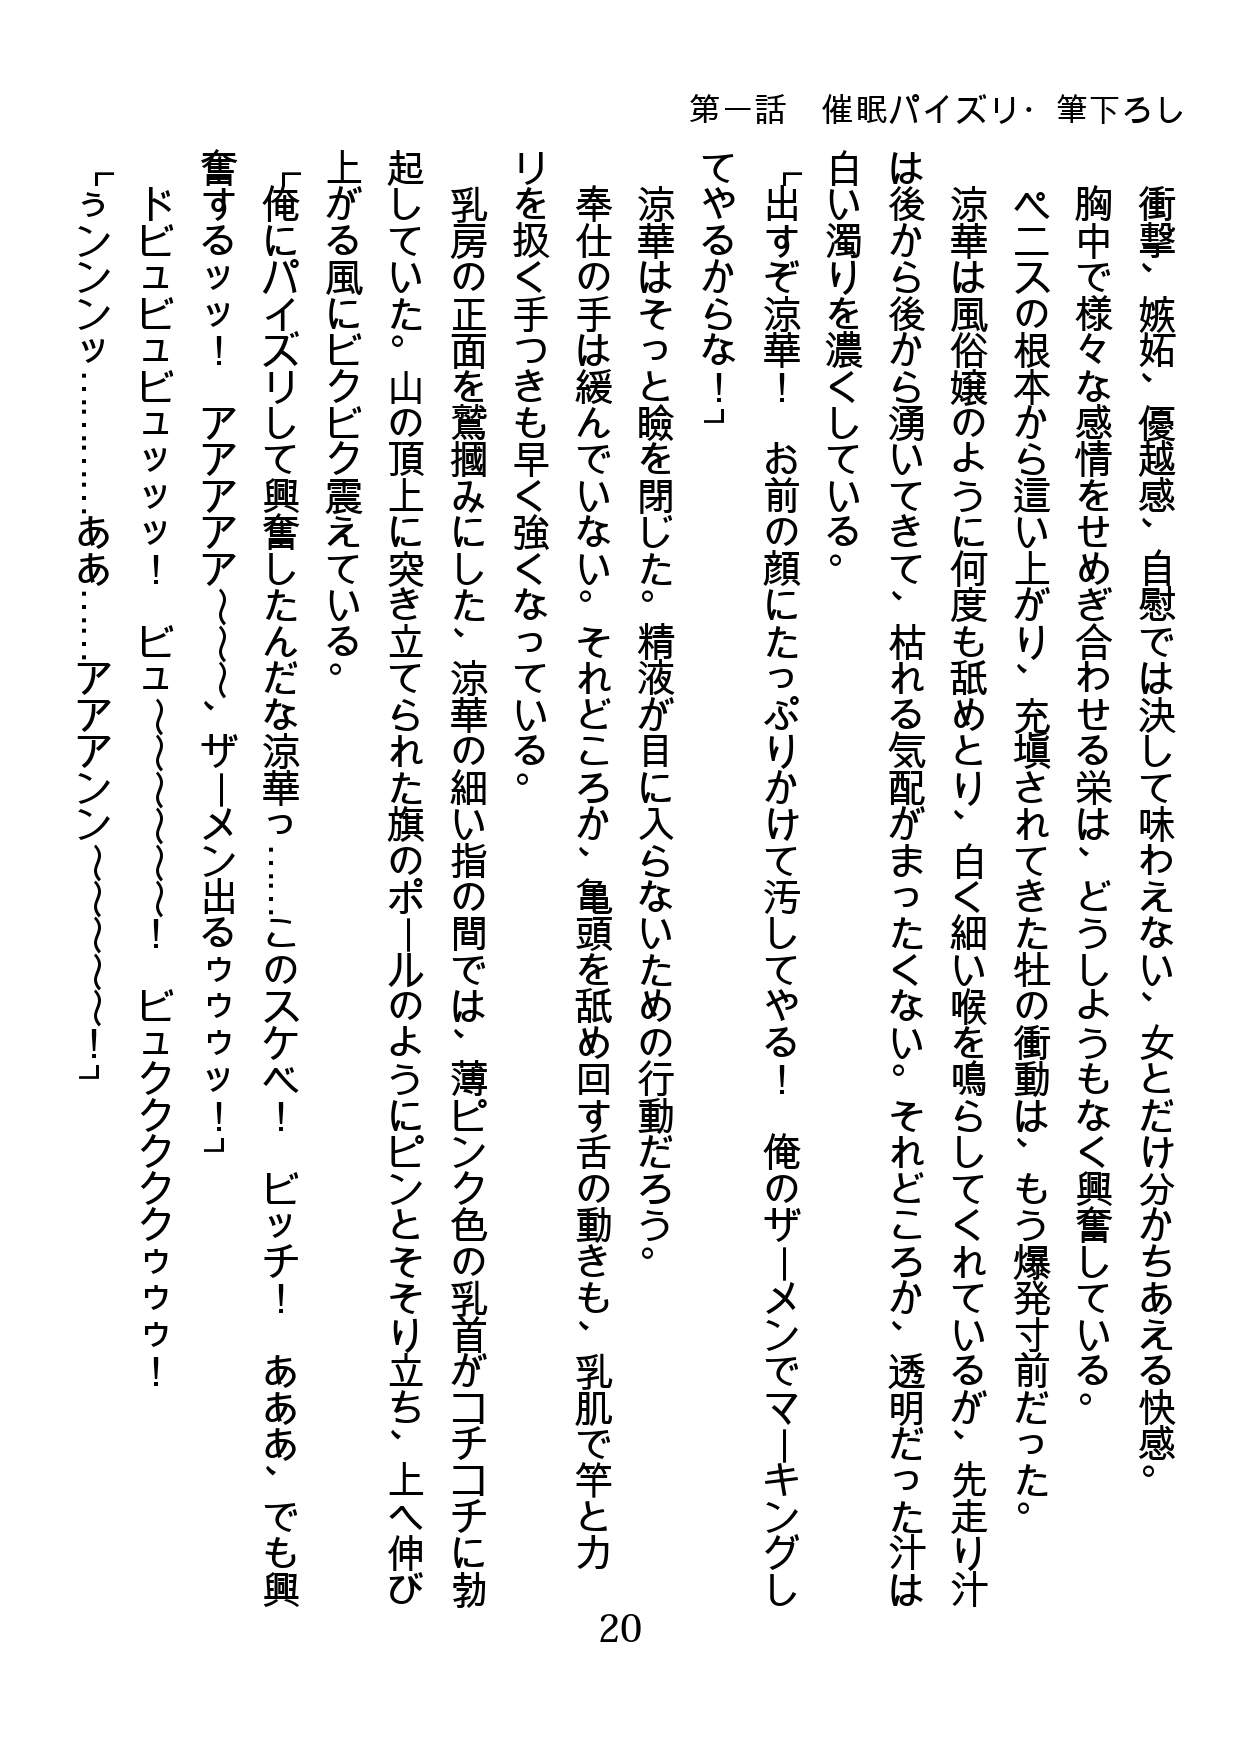 第一話　催眠パイズリ・筆下ろし
衝撃、嫉妬、優越感、自慰では決して味わえない、女とだけ分かちあえる快感。
胸中で様々な感情をせめぎ合わせる栄は、どうしようもなく興奮している。
ペニスの根本から這い上がり、充塡されてきた牡の衝動は、もう爆発寸前だった。
涼華は風俗嬢のように何度も舐めとり、白く細い喉を鳴らしてくれているが、先走り汁
は後から後から湧いてきて、枯れる気配がまったくない。それどころか、透明だった汁は
白い濁りを濃くしている。
「出すぞ涼華！　お前の顔にたっぷりかけて汚してやる！　俺のザーメンでマーキングし
てやるからな！」
涼華はそっと瞼を閉じた。精液が目に入らないための行動だろう。
奉仕の手は緩んでいない。それどころか、亀頭を舐め回す舌の動きも、乳肌で竿とカ
リを扱く手つきも早く強くなっている。
乳房の正面を鷲摑みにした、涼華の細い指の間では、薄ピンク色の乳首がコチコチに勃
起していた。山の頂上に突き立てられた旗のポールのようにピンとそそり立ち、上へ伸び
上がる風にビクビク震えている。
「俺にパイズリして興奮したんだな涼華っ……このスケベ！　ビッチ！　あああ、でも興
奮するッッ！　アアアアア～～～、ザーメン出るゥゥゥッ！」
ドビュビュビュッッッ！　ビュ～～～～～～！　ビュククククククゥゥゥ！
「ぅンンンッ…………ああ……アアアンン～～～～～！」
20